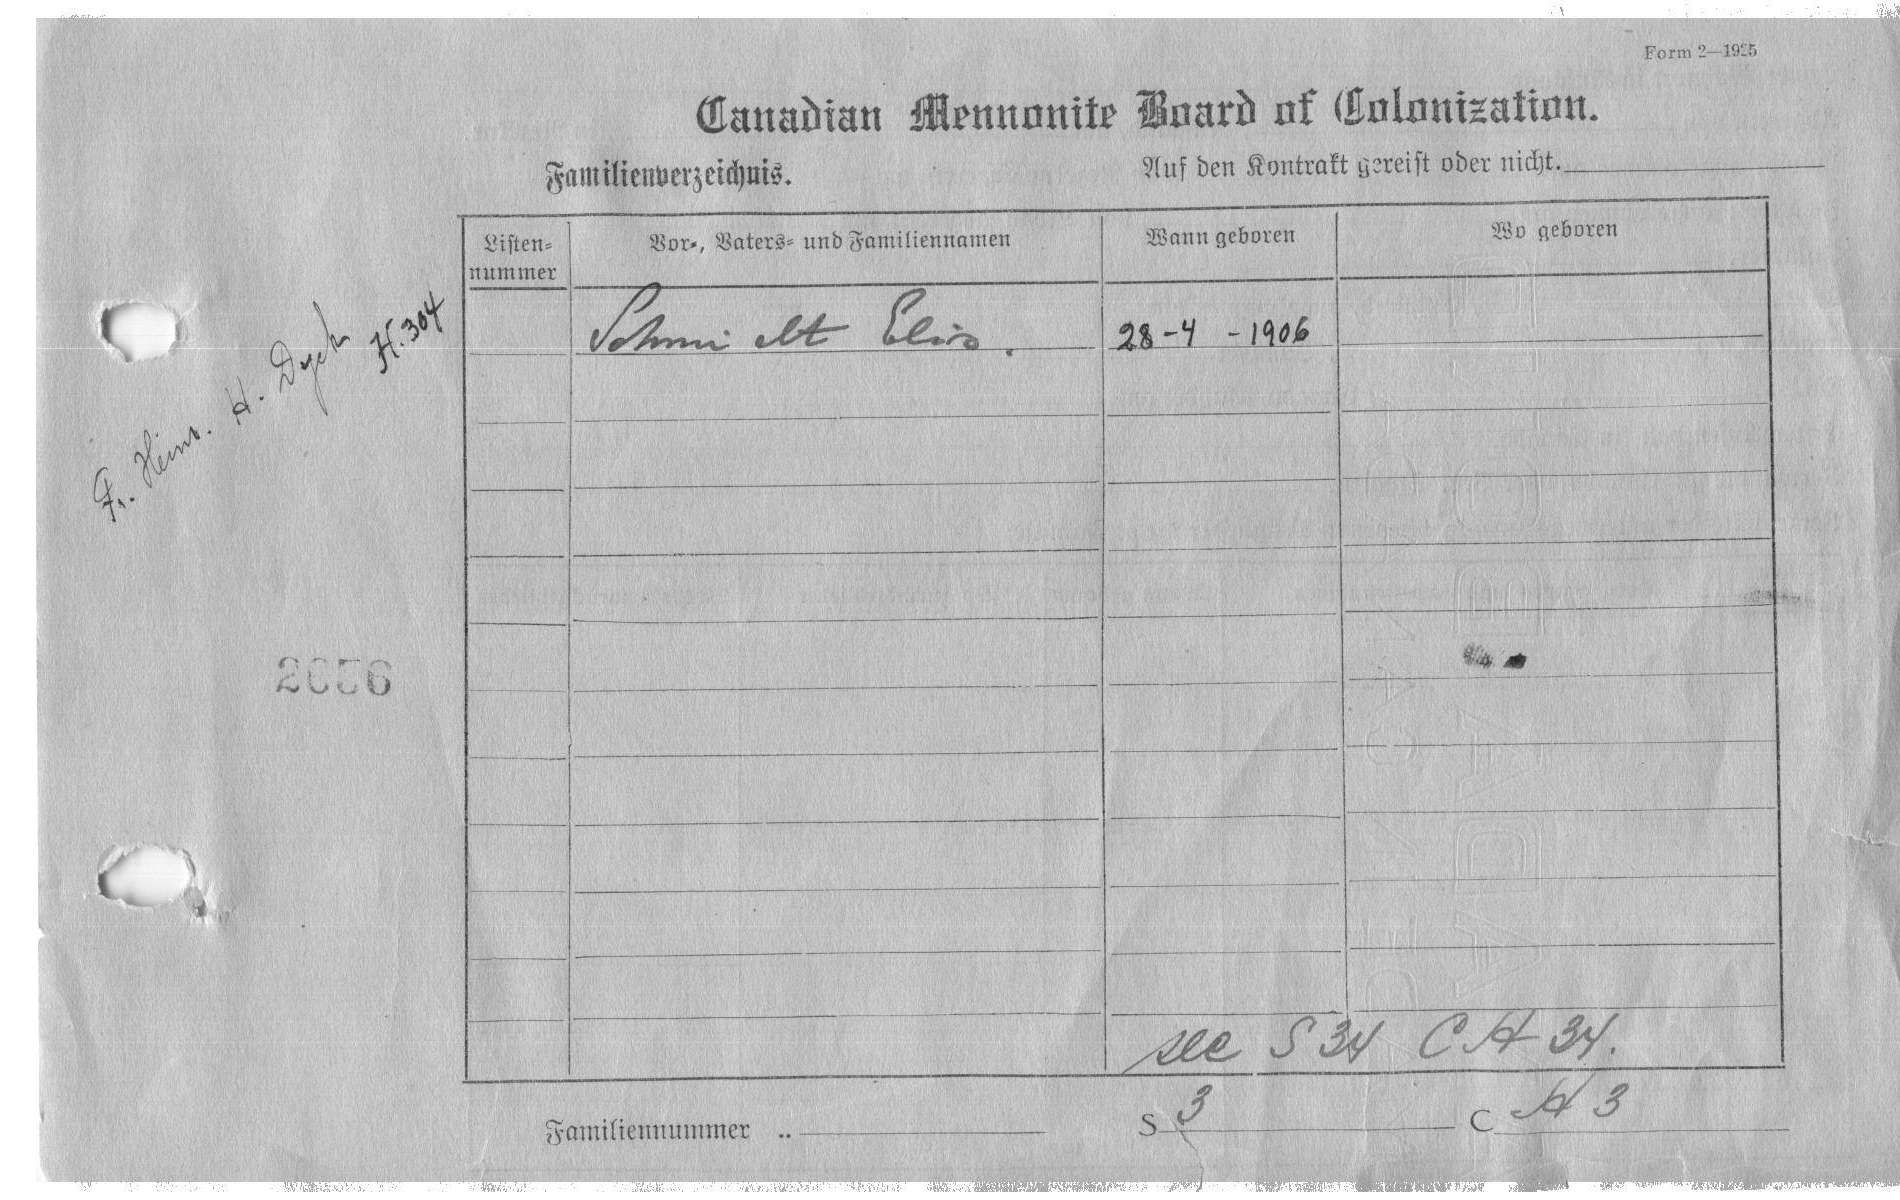 Form 2—1925
Canadian Mennonite Board of Colonization.
Familienverzeichnis.
Auf den Kontrakt gereist oder nicht.
Listen-
nummer
Vor-, Vaters- und Familiennamen
Wann geboren
Wo geboren
Schmidt Elis.
28-4 -1906
Fr. Heinr. H. Dyck H.304
2656
see S 34 C H 34.
Familiennummer ..
S 3
C H 3